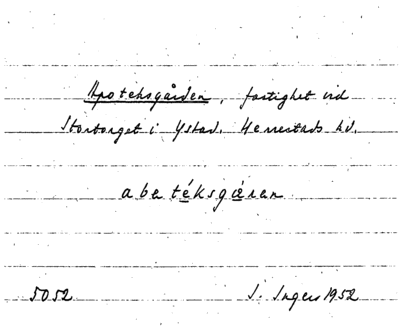 Apoteksgården, fastighet vid
Stortorget i Ystad. Herrestads hd.
abetéksgǽren
5052 I. Ingers 1952